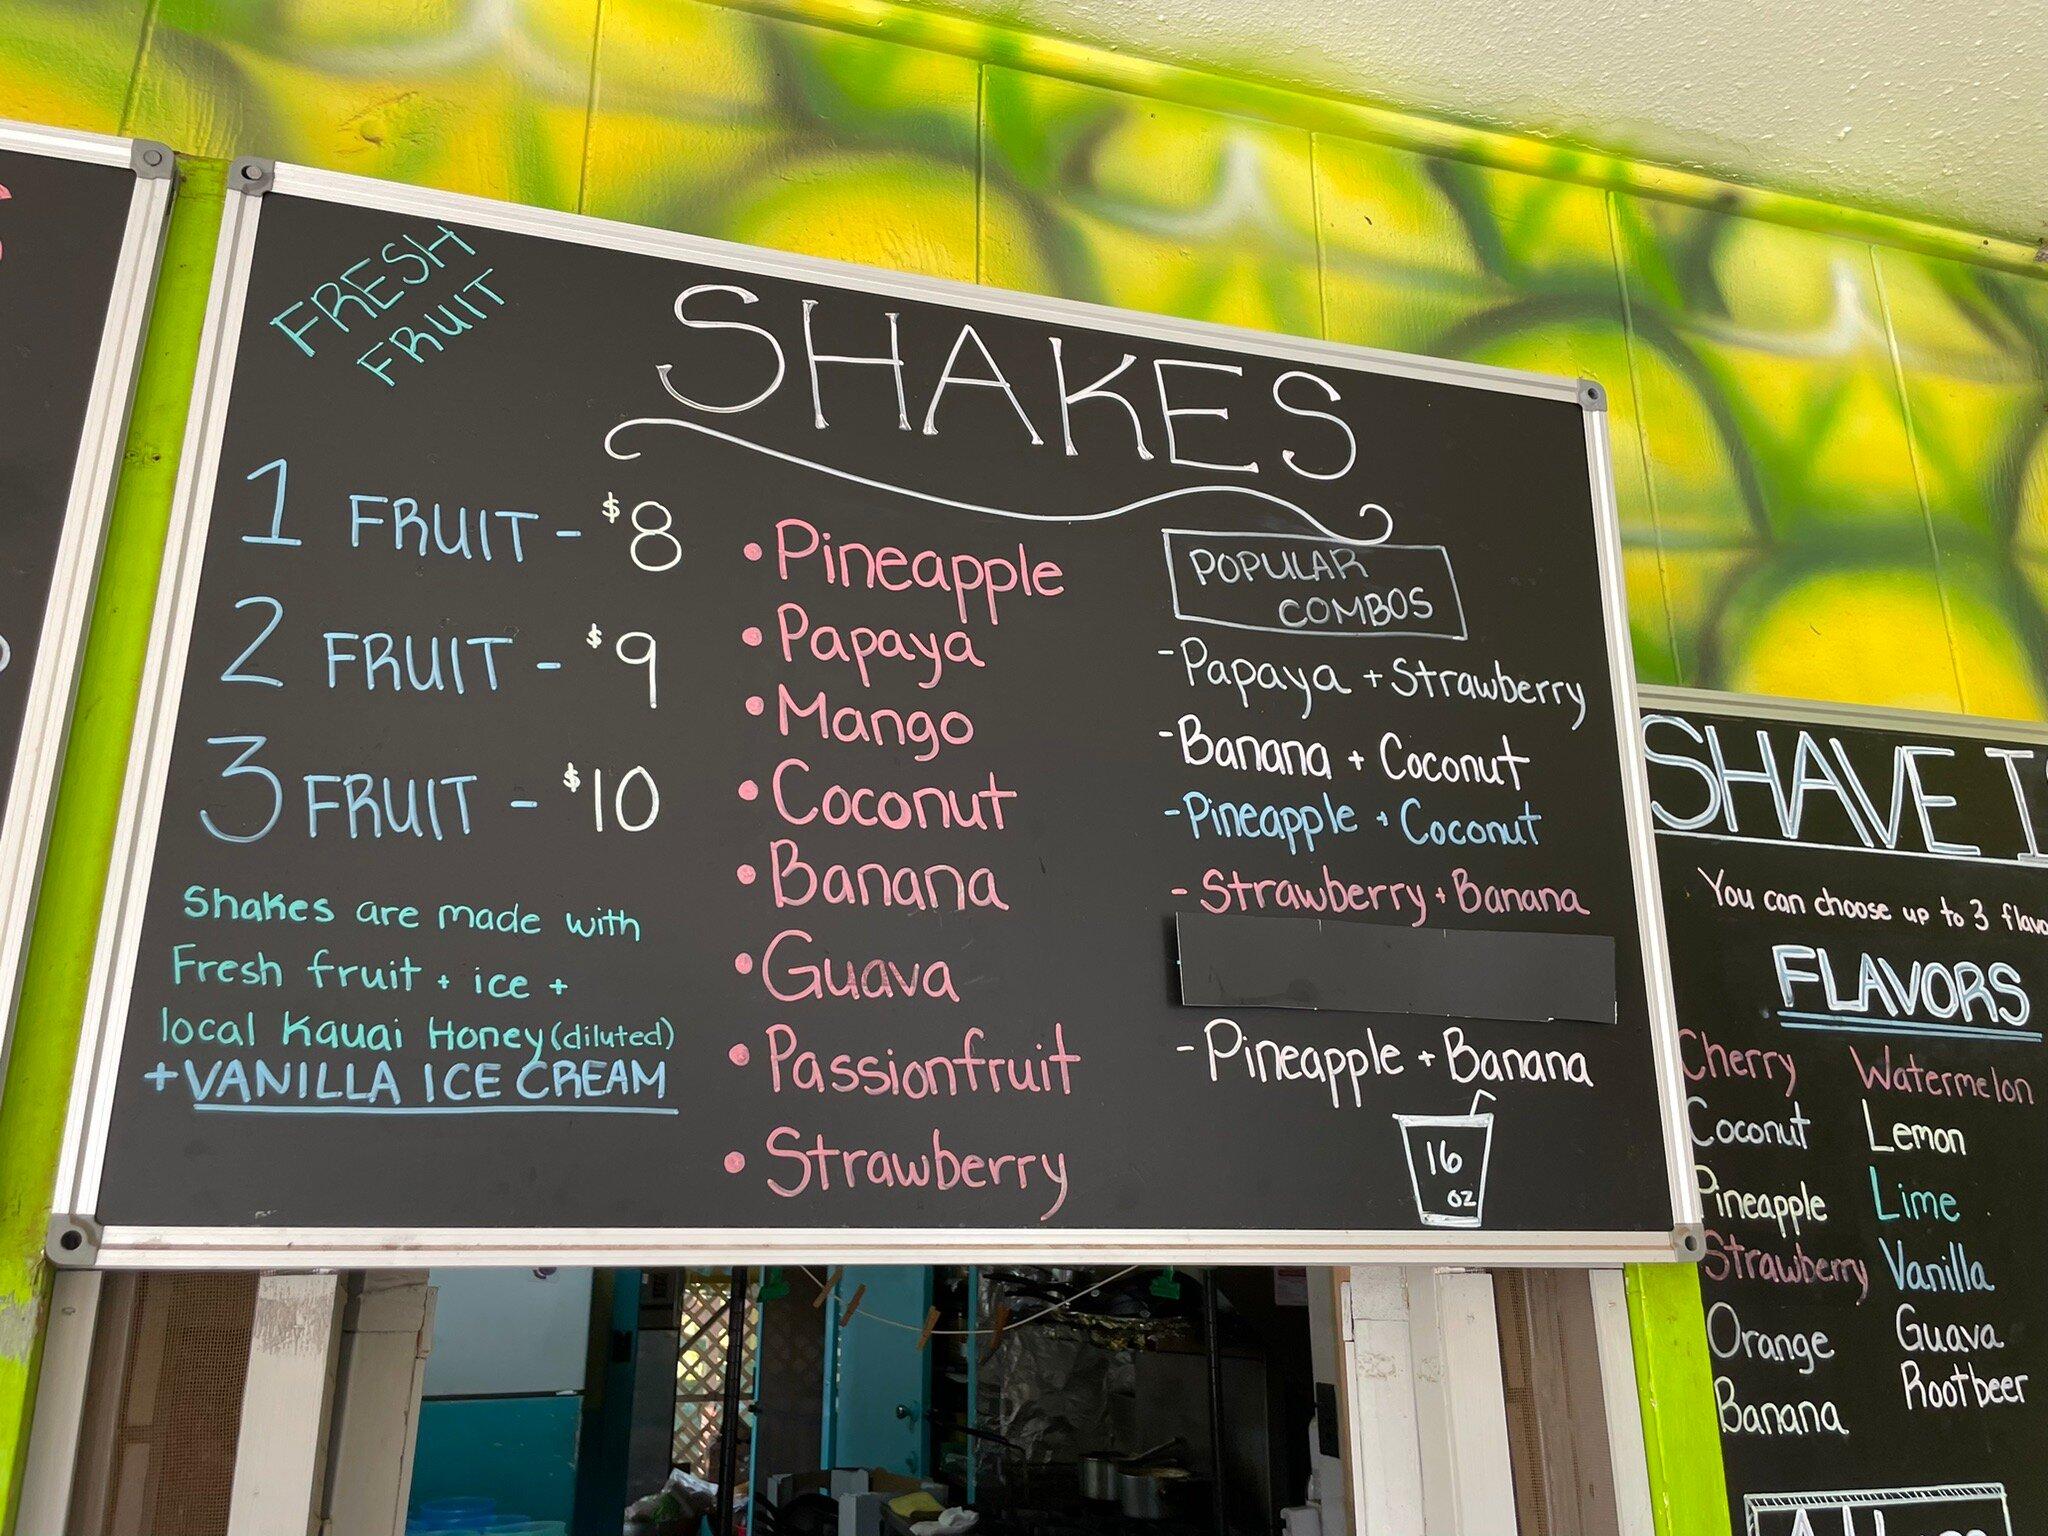 FRESH
FRUIT
SHAKES
1 FRUIT - $8
2 FRUIT - $9
3 FRUIT - $10
Shakes are made with
Fresh fruit + ice +
local Kauai Honey (diluted)
+ VANILLA ICE CREAM
• Pineapple
• Papaya
• Mango
• Coconut
• Banana
• Guava
• Passionfruit
• Strawberry
POPULAR
COMBOS
- Papaya + Strawberry
- Banana + Coconut
- Pineapple + Coconut
- Strawberry + Banana
- Pineapple + Banana
16
oz
SHAVE
You can choose up to 3
FLAVORS
Cherry
Coconut
Pineapple
Strawberry
Orange
Banana
Watermelon
Lemon
Lime
Vanilla
Guava
Rootbeer